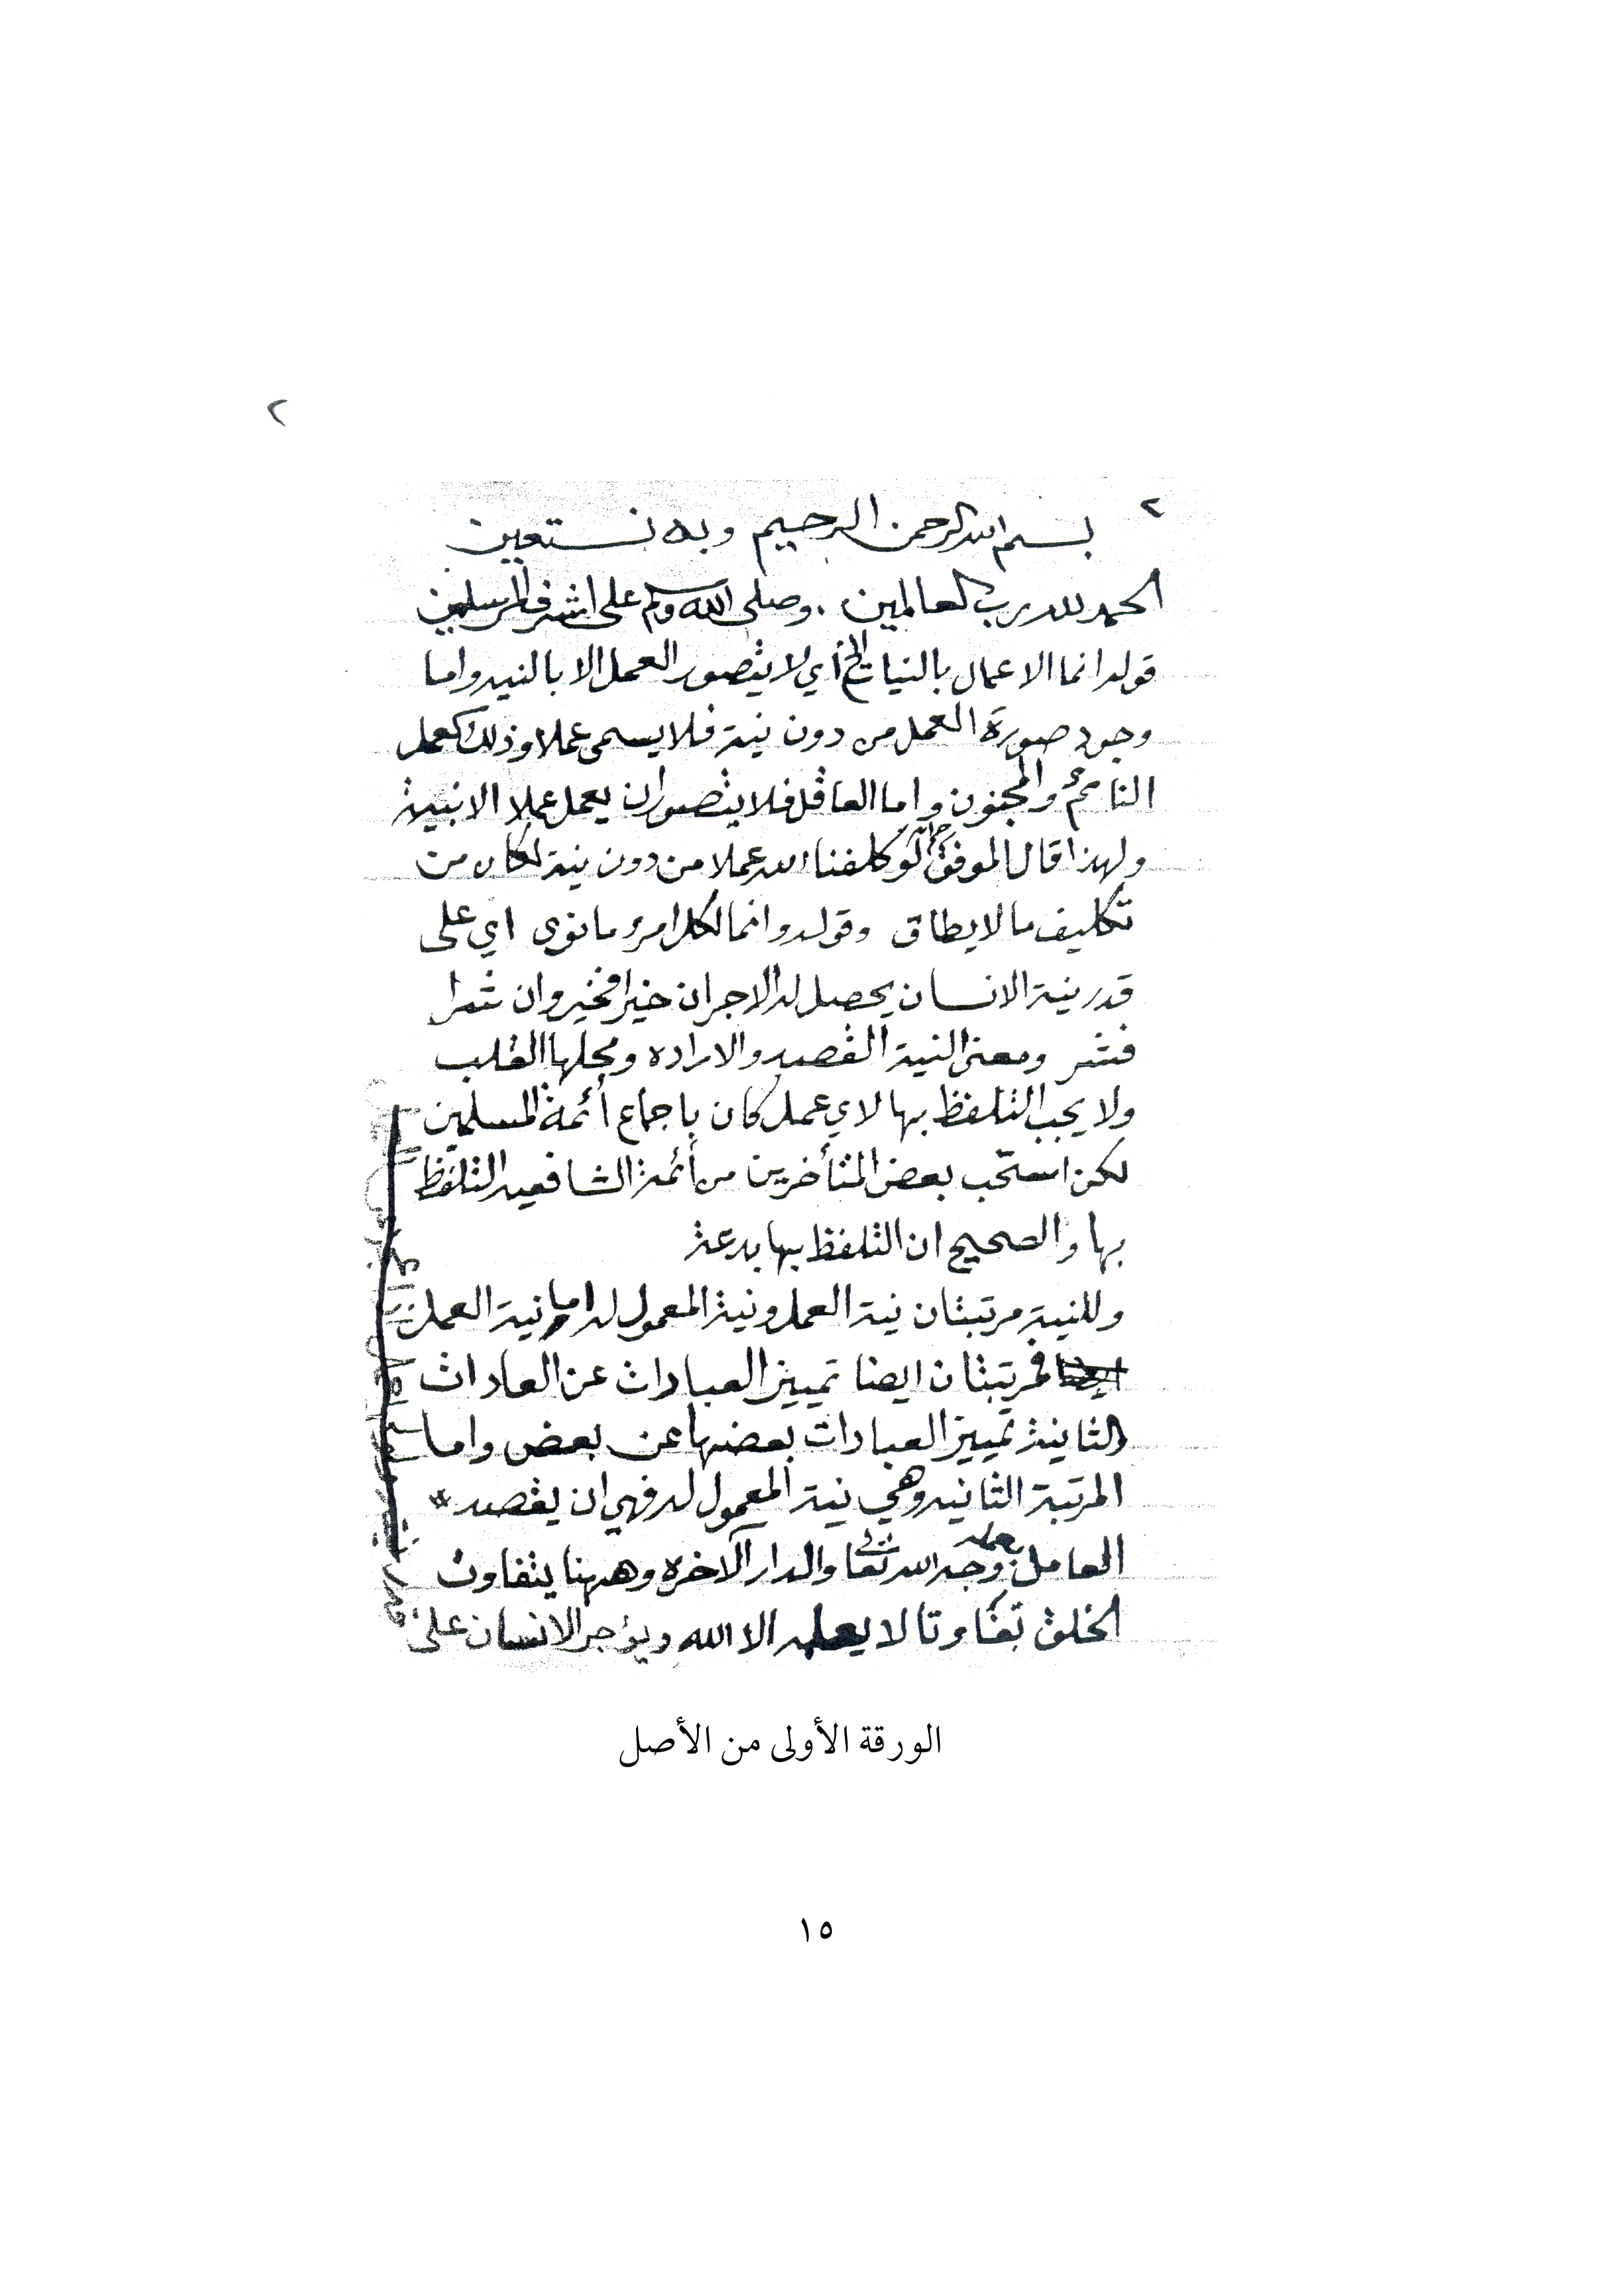 ٢
٢
بسم الله الرحمن الرحيم وبه نستعين
الحمد لله رب العالمين . وصلى الله وسلم على اشرف المرسلين
قوله انما الاعمال بالنيات الخ أي لا يتصور العمل الا بالنيه واما
وجود صورة العمل من دون نية فلا يسمى عملا وذلك كعمل
النائم والمجنون واما العاقل فلا يتصور ان يعمل عملا الا بنية
ولهذا قال الموفق لو كلفنا الله عملا من دون نية لكان من
تكليف ما لا يطاق وقوله وانما لكل امرؤ ما نوى اي على
قدر نية الانسان يحصل له الاجر ان خيرا فخير وان شرا
فشر ومعنى النية القصد والاراده ومحلها القلب
ولا يجب التلفظ بها لاي عمل كان باجماع أئمة المسلمين
لكن استحب بعض المتأخرين من أئمة الشافعيه التلفظ
بها والصحيح ان التلفظ بها بدعة
وللنية مرتبتان نية العمل ونية المعمول له اما نية العمل
فمرتبتان ايضا تمييز العبادات عن العادات
الثانية تمييز العبادات بعضها عن بعض واما
المرتبة الثانيه وهي نية المعمول له فهي ان يقصد *
العامل بعمله وجه الله تعالى والدار الآخره وههنا يتفاوت
الخلق تفاوتا لا يعلمه الا الله ويؤجر الانسان على
الورقة الأولى من الأصل
١٥